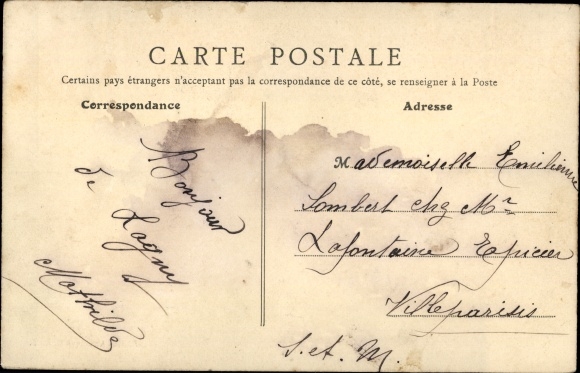 CARTE POSTALE
Certains pays étrangers n'acceptant pas la correspondance de ce côté, se renseigner à la Poste
Correspondance
Bonjour
de Lagny
Mathilde
Adresse
Mademoiselle Emilienne
Lombert chez Mr
Lafontaine Epicier
Villeparisis
S. et. M.